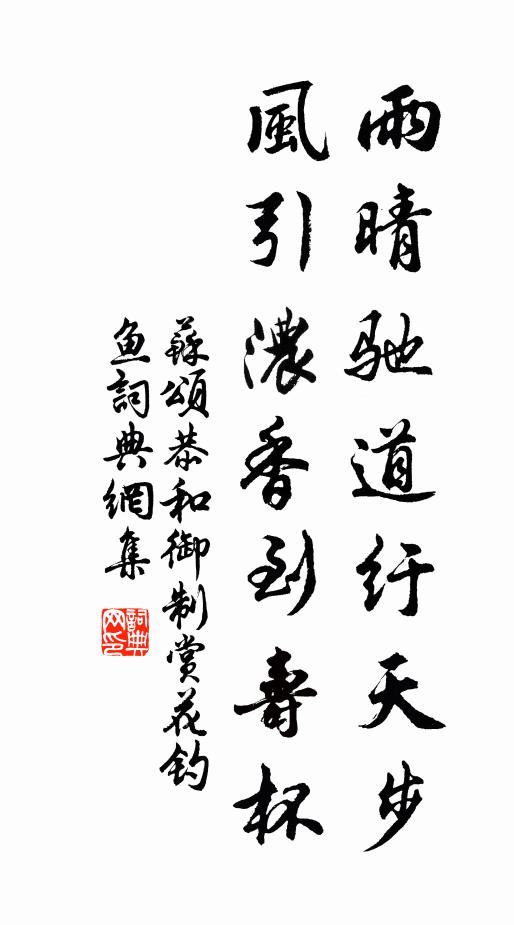 雨晴馳道紆天步
風引濃香到壽杯
蘇頌恭和御制賞花釣
魚詞典網集
詞典網印